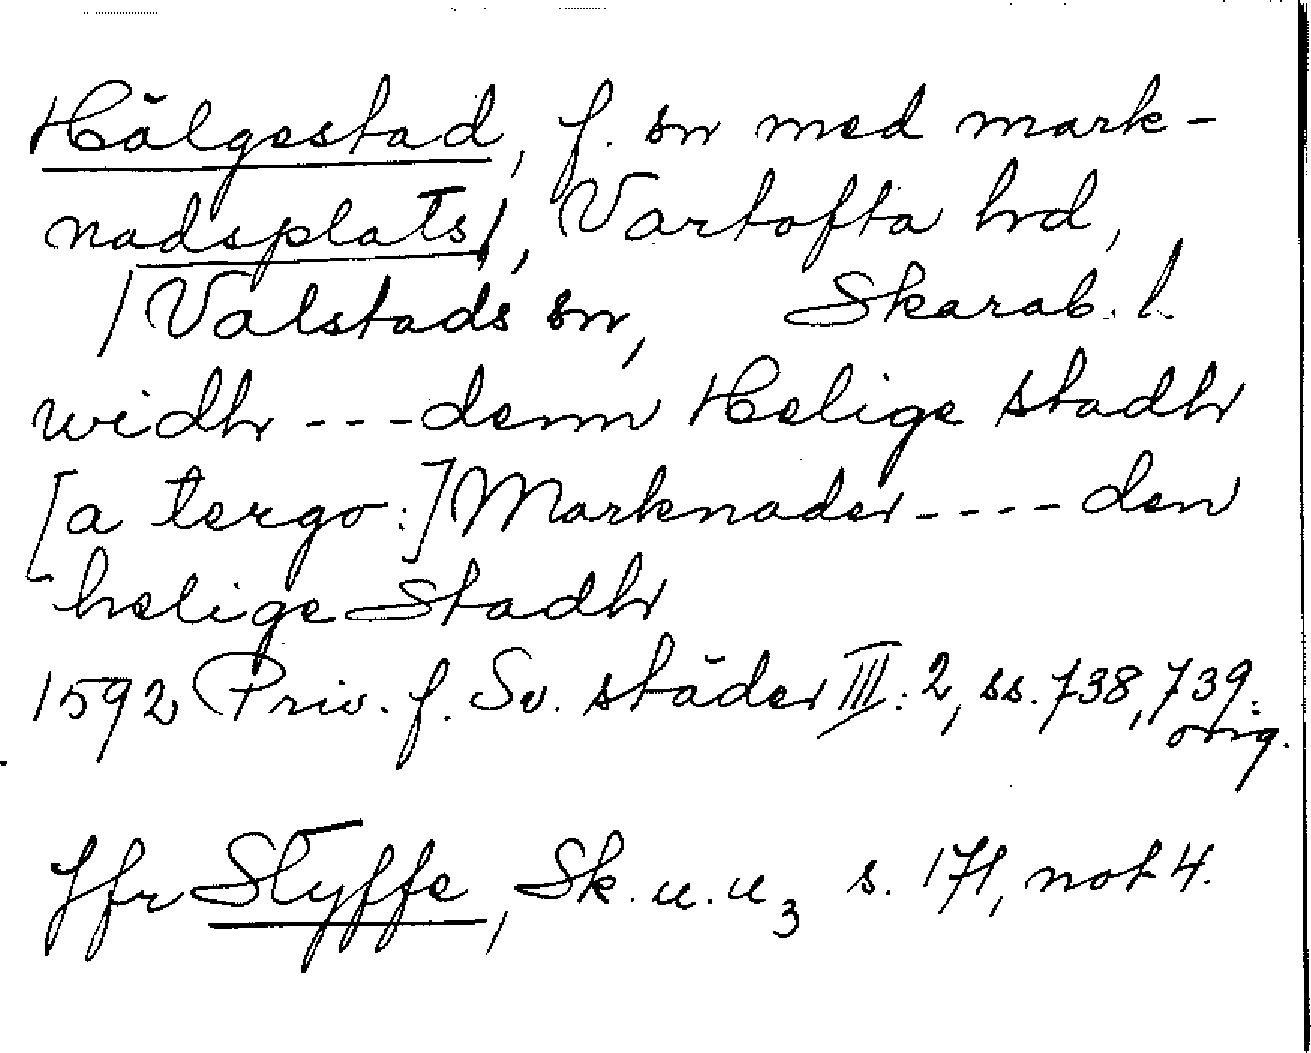 Hälgestad, f. sn med mark-
nadsplats/, Vartofta hrd,
/Valstads sn, Skarab. l.
widhr --- denn Helige stadhr
[a tergo:] Marknader ---- den
helige Stadhr
1592 Priv. f. Sv. städer III: 2, ss. 738, 739.
orig.
Jfr Styffe, Sk. u. u3 s. 171, not 4.